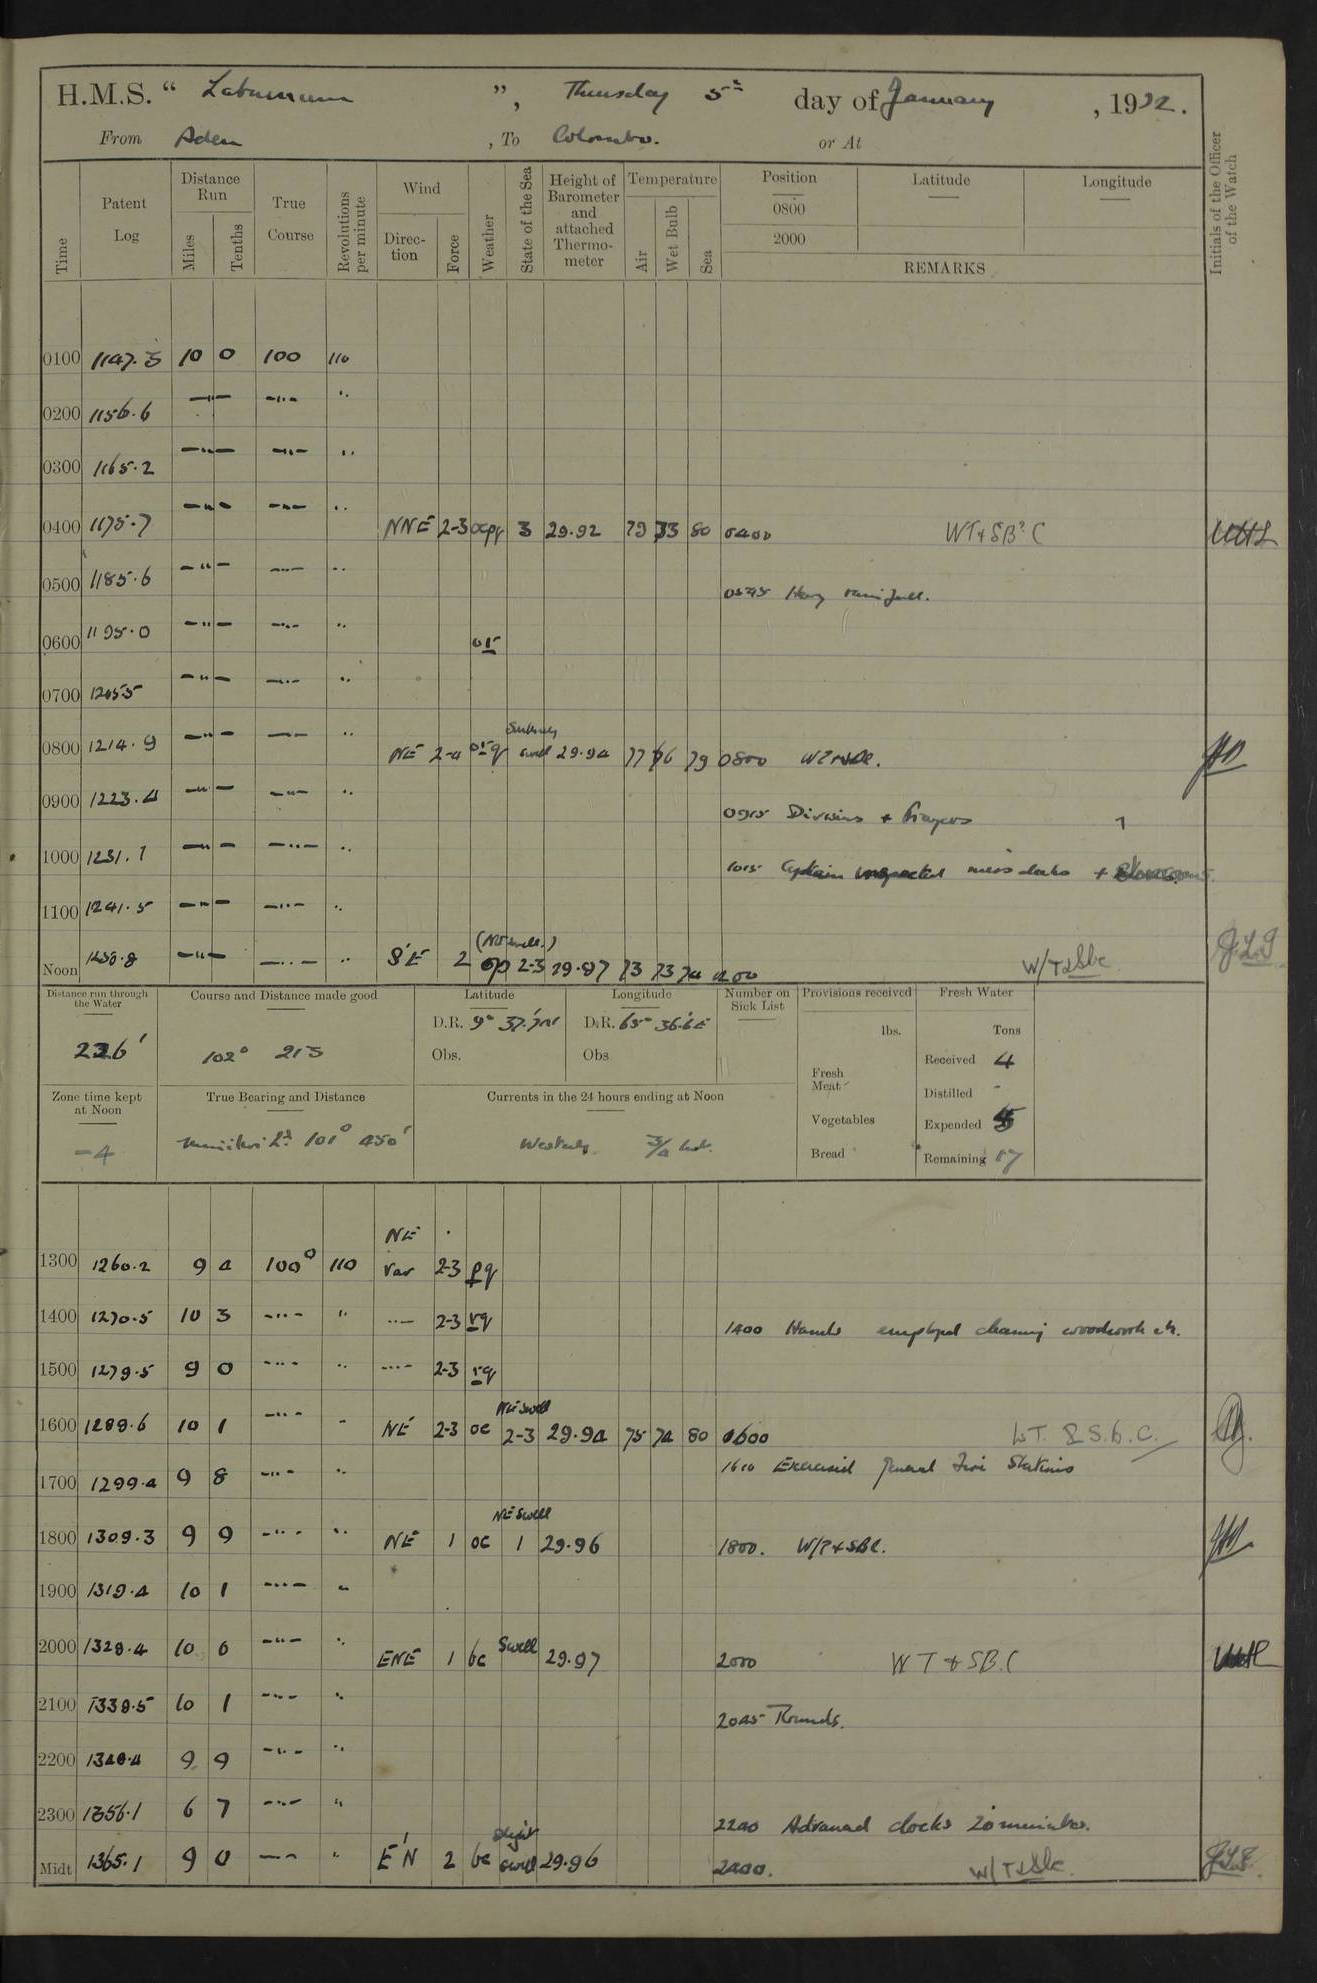 H.M.S. “ Laburnum ”, Thursday 5th day of January, 1922.
From Aden , To Colombo. or At
Time
Patent Log
Distance Run
Miles
Tenths
True Course
Revolutions per minute
Wind
Direction
Force
Weather
State of the Sea
Height of Barometer and attached Thermometer
Temperature
Air
Wet Bulb
Sea
Position
0800
2000
Latitude
Longitude
REMARKS
Initials of the Officer of the Watch
0100 1147.3 10 0 100 110
0200 1156.6 —"— —"— "
0300 1165.2 —"— —"— "
0400 1175.7 —"— —"— " NNE 2-3 3 29.92 79 73 80 0400 WT & SB. C
0500 1185.6 —"— —"— "
0545 Heavy rain fall.
0600 1195.0 —"— —"— " or
0700 1205.5 —"— —"— "
0800 1214.9 —"— —"— " NE 2-4 orq swell 29.94 77 76 79 0800
0900 1223.4 —"— —"— "
0915 Divisions + Prayers
1000 1231.1 —"— —"— "
1015 Captain inspected mess decks + Storerooms.
1100 1241.5 —"— —"— "
Noon 1250.8 —"— —"— " S'E 2 (NE swell.) op 2-3 29.97 73 73 74 1200 W/T & Sbc
Distance run through the Water
226'
Course and Distance made good
102° 215
Latitude
D.R. 9° 37.'
Obs.
Longitude
D.R. 65° 36.'6 E
Obs
Number on Sick List
Provisions received
lbs.
Fresh Meat
Vegetables
Bread
Fresh Water
Tons
Received 4
Distilled -
Expended 5
Remaining 17
Zone time kept at Noon
-4
True Bearing and Distance
Minikoi Lt. 101° 450'
Currents in the 24 hours ending at Noon
Westerly. 3/4 knt.
NE
1300 1260.2 9 4 100° 110 Var 2-3 pq
1400 1270.5 10 3 —"— " —"— 2-3 rq
1400 Hands employed cleaning woodwork etc.
1500 1279.5 9 0 —"— " —"— 2-3 rq
1600 1289.6 10 1 —"— " NE 2-3 oc NE swell 2-3 29.94 75 74 80 1600 W T. & S. b. C.
1610 Exercised General Fire Stations
1700 1299.4 9 8 —"— "
1800 1309.3 9 9 —"— " NE 1 oc NE Swell 1 29.96 1800. W/T + SBC.
1900 1319.4 10 1 —"— "
2000 1329.4 10 0 —"— " ENE 1 bc Swell 29.97 2000 W T & SB. C
2100 1339.5 10 1 —"— "
2045 Rounds.
2200 1349.4 9 9 —"— "
2300 1356.1 6 7 —"— "
2240 Advanced clocks 20 minutes.
Midt 1365.1 9 0 —"— " E'N 2 bc Slight swell 29.96 2400. W/T & Sbc.